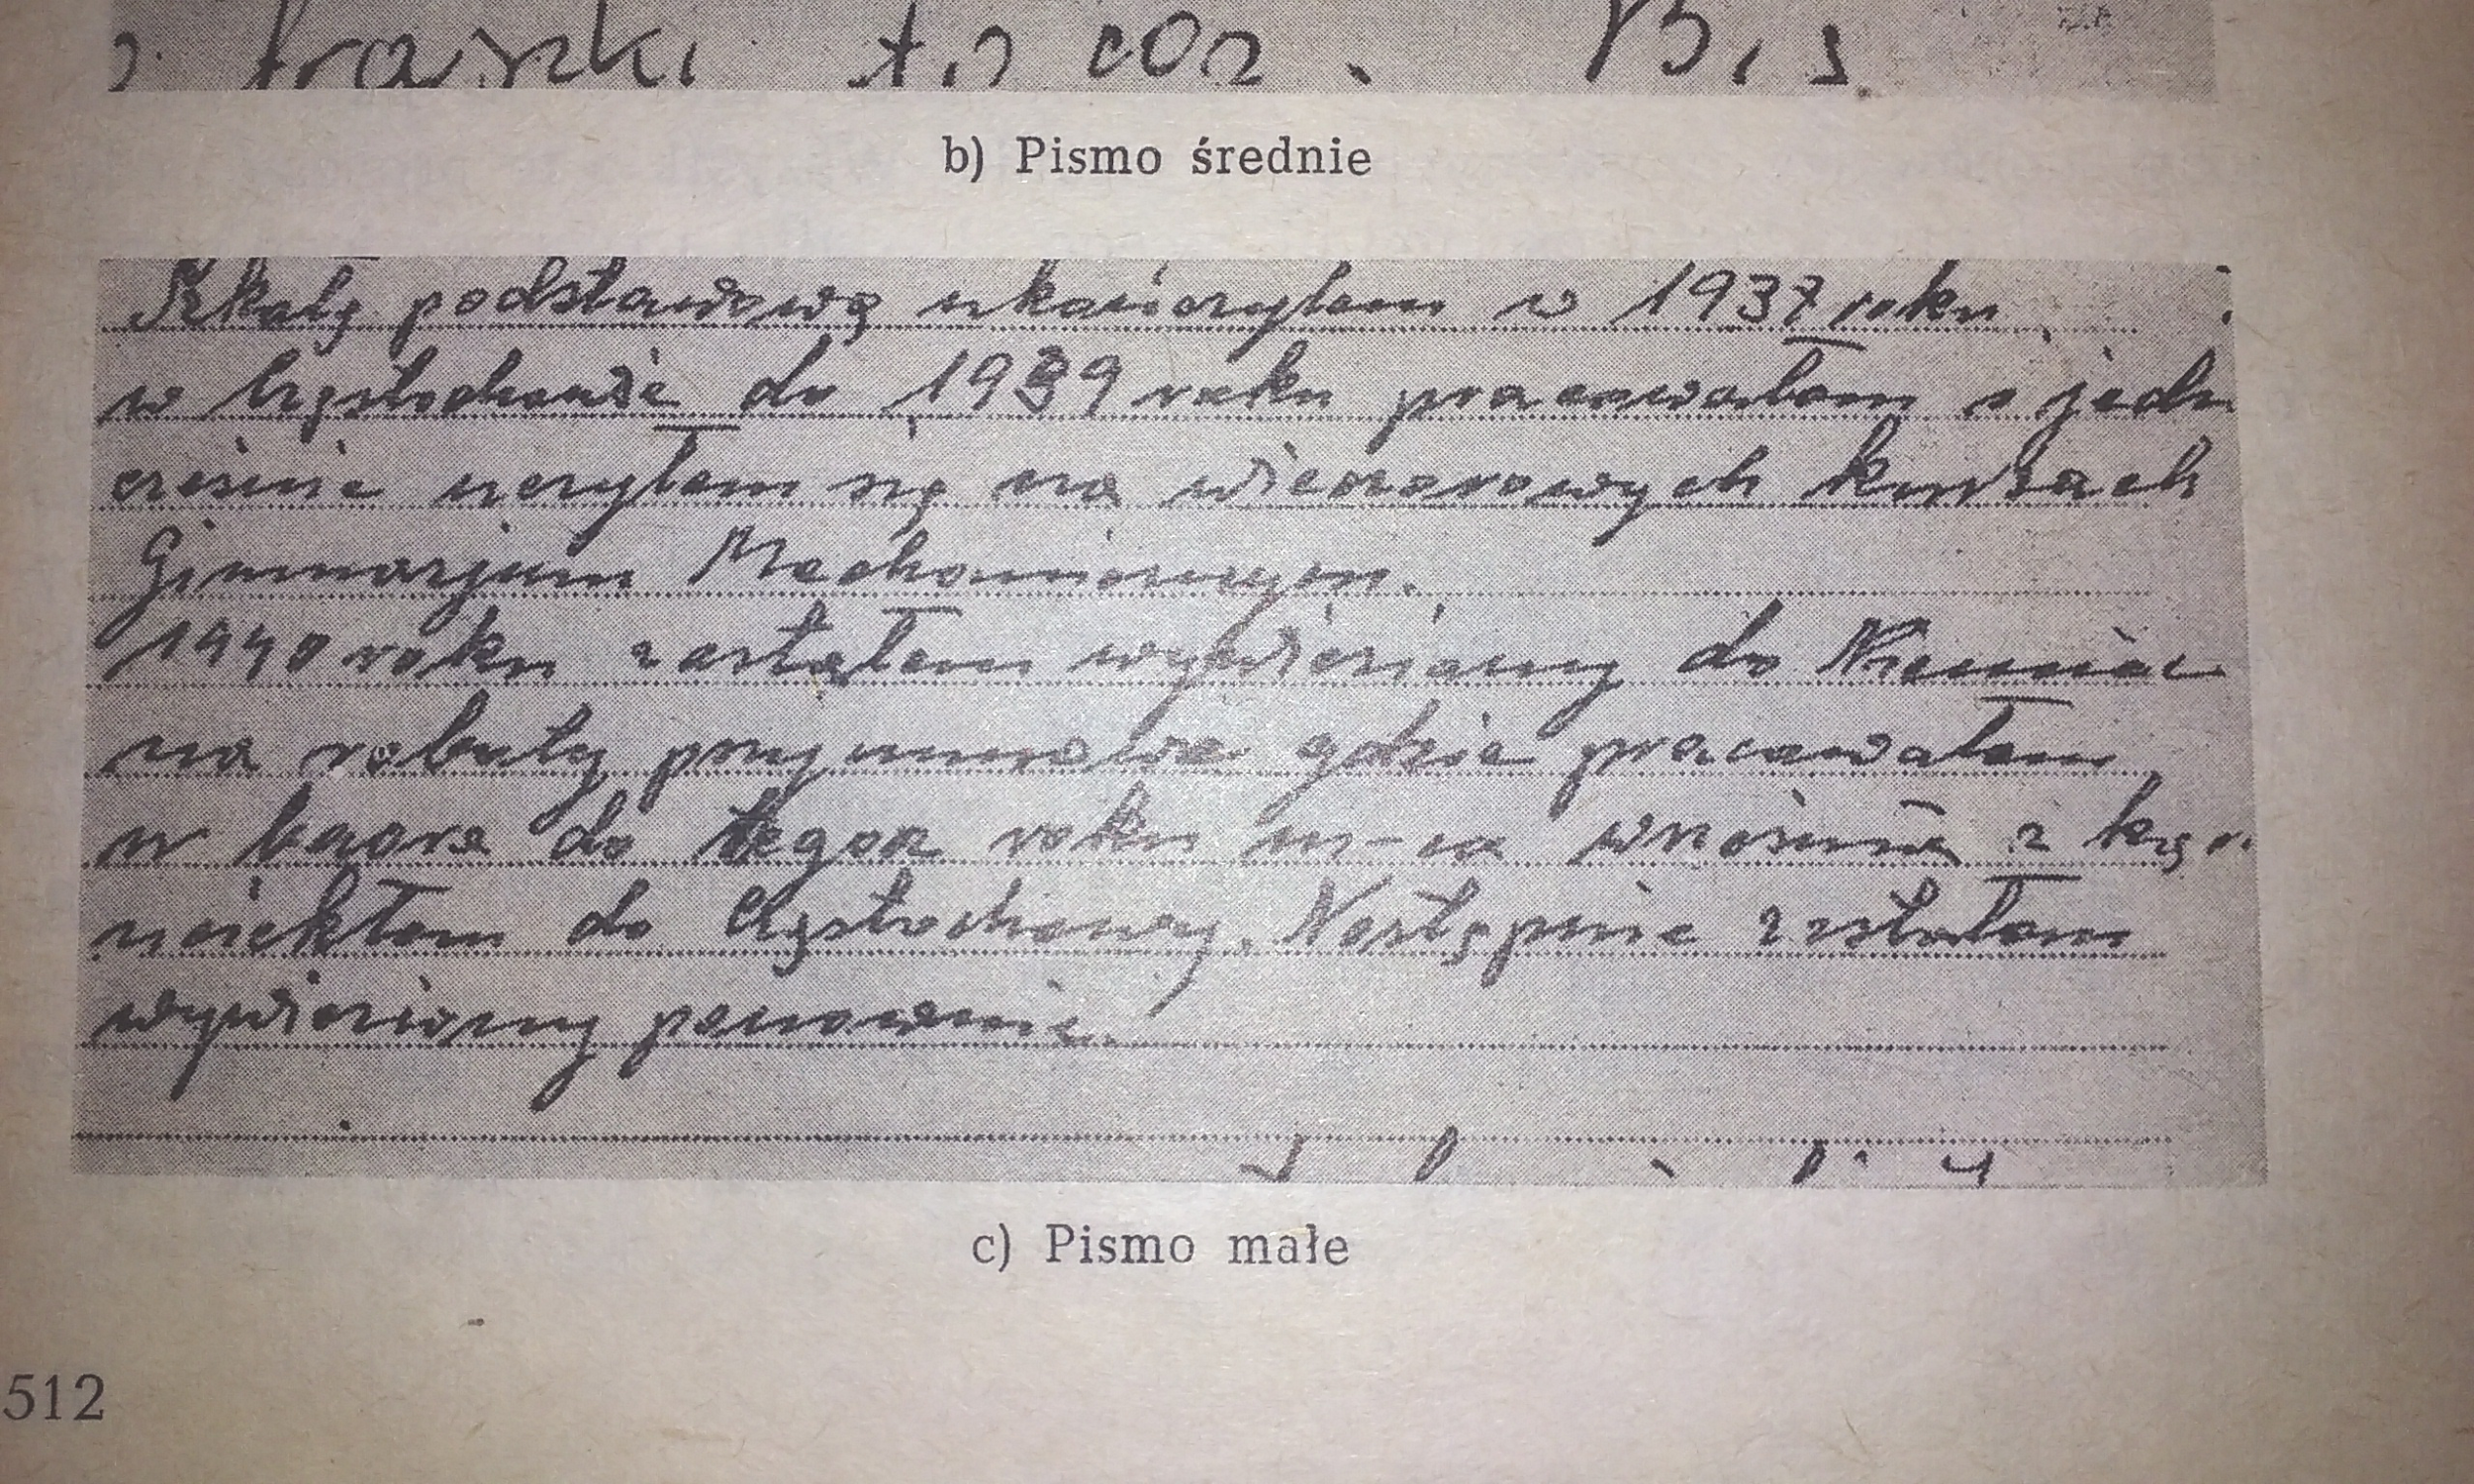 b) Pismo średnie
Szkołę podstawową ukończyłem w 1937 roku.
w Częstochowie do 1939 roku pracowałem a jedn
cześnie uczyłem się na wieczorowych kursach
Gimnazjum Mechanicznym.
1940 roku zostałem wywieziony do Niemiec
na roboty przymusowe gdzie pracowałem
w do tegoz roku m-ca września i
uciekłem do Częstochowy. Następnie zostałem
wywieziony ponownie.
c) Pismo małe
512